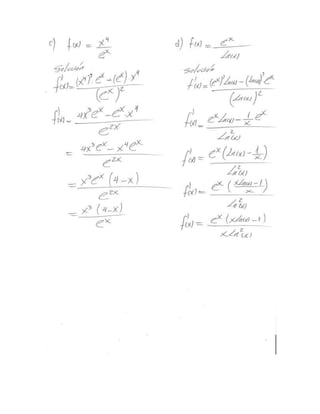 c) f(x) = x⁴/eˣ
solución
f'(x) = ((x⁴)'·eˣ - (eˣ)'x⁴)/(eˣ)²
f'(x) = (4x³eˣ - eˣ·x⁴)/e²ˣ
= (4x³eˣ - x⁴eˣ)/e²ˣ
= x³eˣ(4-x)/e²ˣ
= x³(4-x)/eˣ
d) f(x) = eˣ/Ln(x)
solución
f'(x) = ((eˣ)'Ln(x) - (Ln(x))'eˣ)/(Ln(x))²
f'(x) = (eˣLn(x) - 1/x eˣ)/Ln²(x)
f'(x) = eˣ(Ln(x) - 1/x)/Ln²(x)
f'(x) = eˣ((xLn(x)-1)/x)/Ln²(x)
f'(x) = eˣ(xLn(x)-1)/xLn²(x)